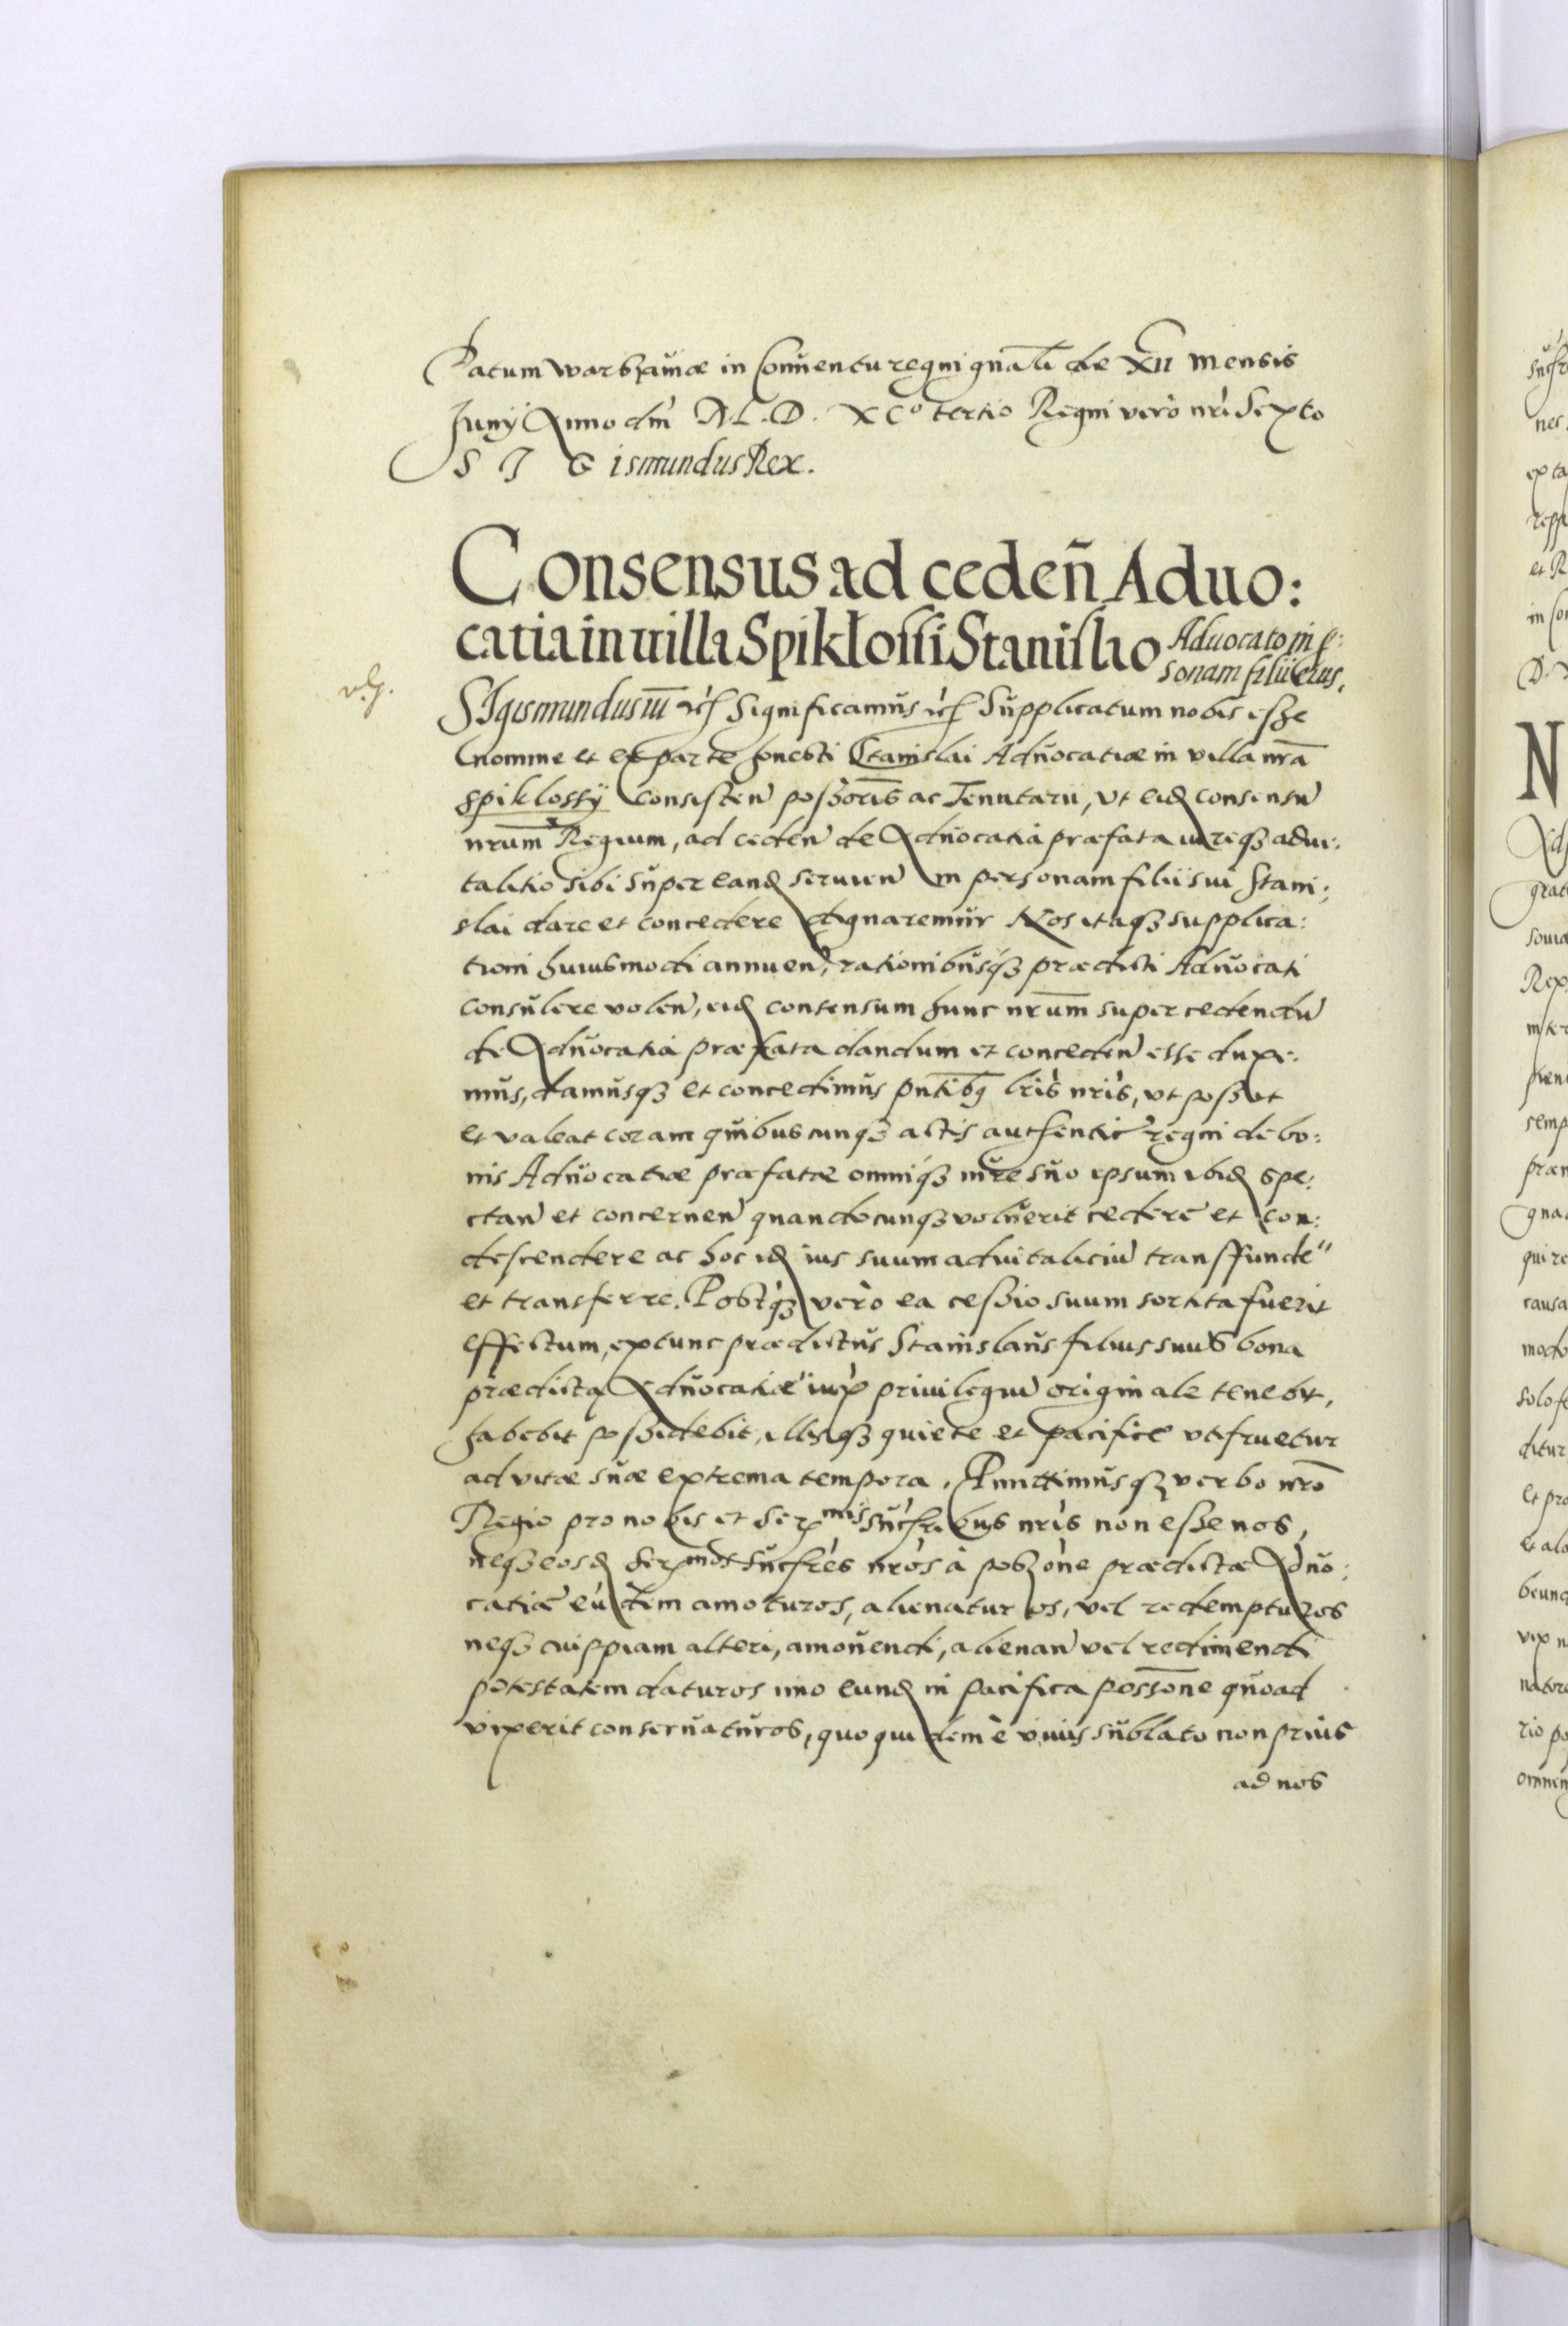 Datum Warschauiæ in Conuentu regni gnãli die XII mensis
Junij Anno dni M. D. XCº tertio Regni verò nri Sexto
SIGismundus Rex.
Consensus ad cedeñ Aduo:
catia in uilla Spiklossi Stanislao Aduocato in p:
sonam filii eius,
SIgismundus III etc Significamus etc Supplicatum nobis esse
nomine et ex parte honesti Stanislai Aduocatiæ in villa nrã
Spiklossÿ consisten possoris ac Tenutarii, vt eid consensu
nrum Regium, ad ceden de Aduocatia præfata iureq3 adui:
talitio sibi super eand seruien in personam filii sui Stani:
slai dare et concedere dignaremur Nos itaq3 supplica:
tioni huiusmodi annuen, rationibusq3 prædicti Aduocati
consulere volen, eid consensum hunc nrum super cedendu
de Aduocatia præfata dandum et conceden esse duxi:
mus, damusq3 et concedimus pntibq lris nris, vt possit
et valeat coram quibuscunq3 actis authentic regni de bo:
nis Aduocatiæ præfatæ omniq3 iure suo ipsum ibid spe:
ctan et concernen quandocunq3 voluerit cedere et con:
descendere ac hoc id ius suum aduitaliciu transffunde"
et transferre. Postq3 verò ea cessio suum sortita fuerit
effectum, extunc prædictus Stanislaus filius suus bona
prædicta Aduocatiæ iux priuilegiu originale tenebit,
habebit possidebit, illisq3 quiete et pacifice vtifruetur
ad vitæ suæ extrema tempora. Promittimusq3 verbo nro
Regio pro nobis et Ser mis succribus nris non esse nos,
neq3 eosd Ser mos succres nros à possone prædictæ Aduo:
catiæ eundem amoturos, alienaturos, vel redempturos
neq3 cuippiam alteri, amouendi, alienan vel redimendi
potestatem daturos imo eund in pacifica possone quoad
vixerit conseruaturos, quo quidem è viuis sublato non prius
ad nos